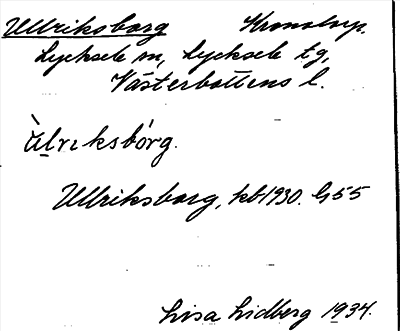 Ullriksborg Kronotorp.
Lycksele sn, Lycksele tg,
Västerbottens l.
ùlrıksbórg.
Ullriksborg, kb 1930. G 55
Lisa Lidberg 1934.